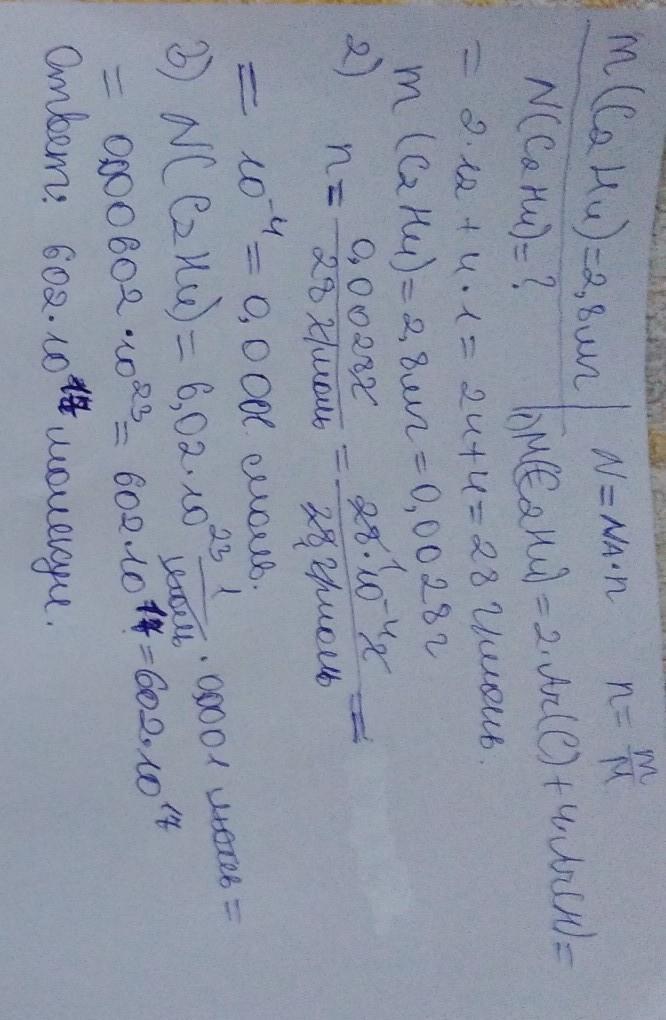 m(C₂H₄)=2,8мг N=NA·n n=m/M
N(C₂H₄)=? 1) M(C₂H₄)=2·Ar(C)+4·Ar(H)=
= 2·12+4·1=24+4=28 г/моль.
m(C₂H₄)=2,8мг=0,0028г
2) n= 0,0028г/28 г/моль = 28·10⁻⁴г/28 г/моль =
= 10⁻⁴=0,0001 моль.
3) N(C₂H₄)=6,02·10²³ 1/моль · 0,0001 моль=
= 0,000602·10²³=602·10¹⁷=602·10¹⁷
Ответ: 602·10¹⁷ молекул.